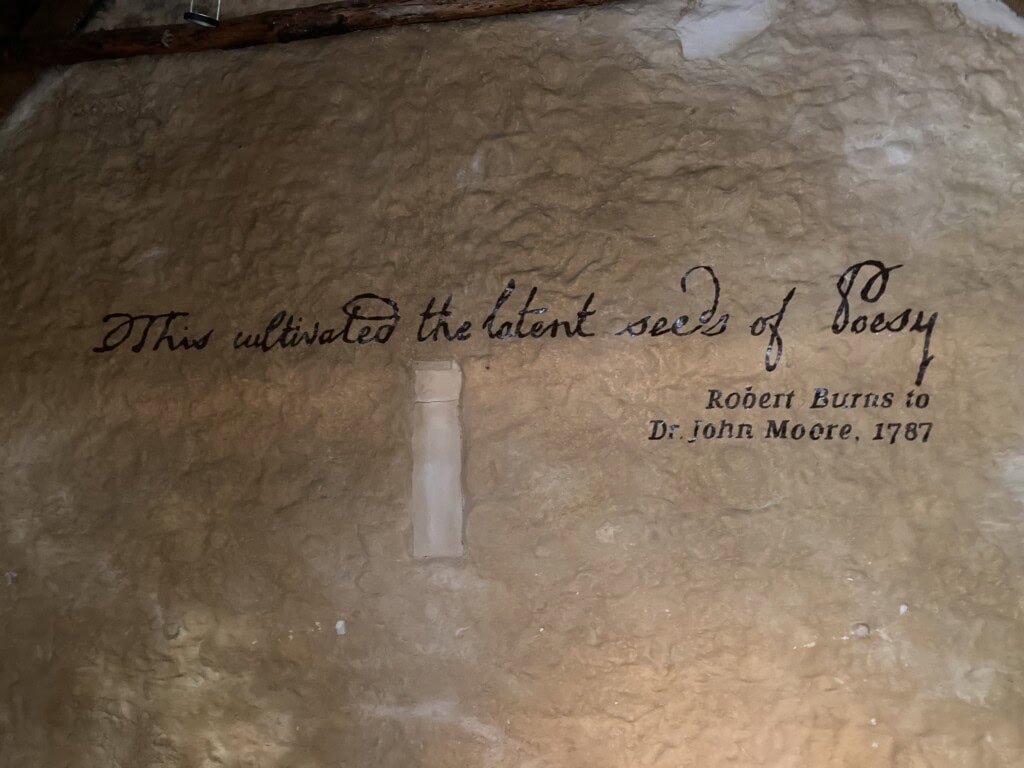 This cultivated the latent seeds of Poesy
Robert Burns to
Dr. John Moore, 1787